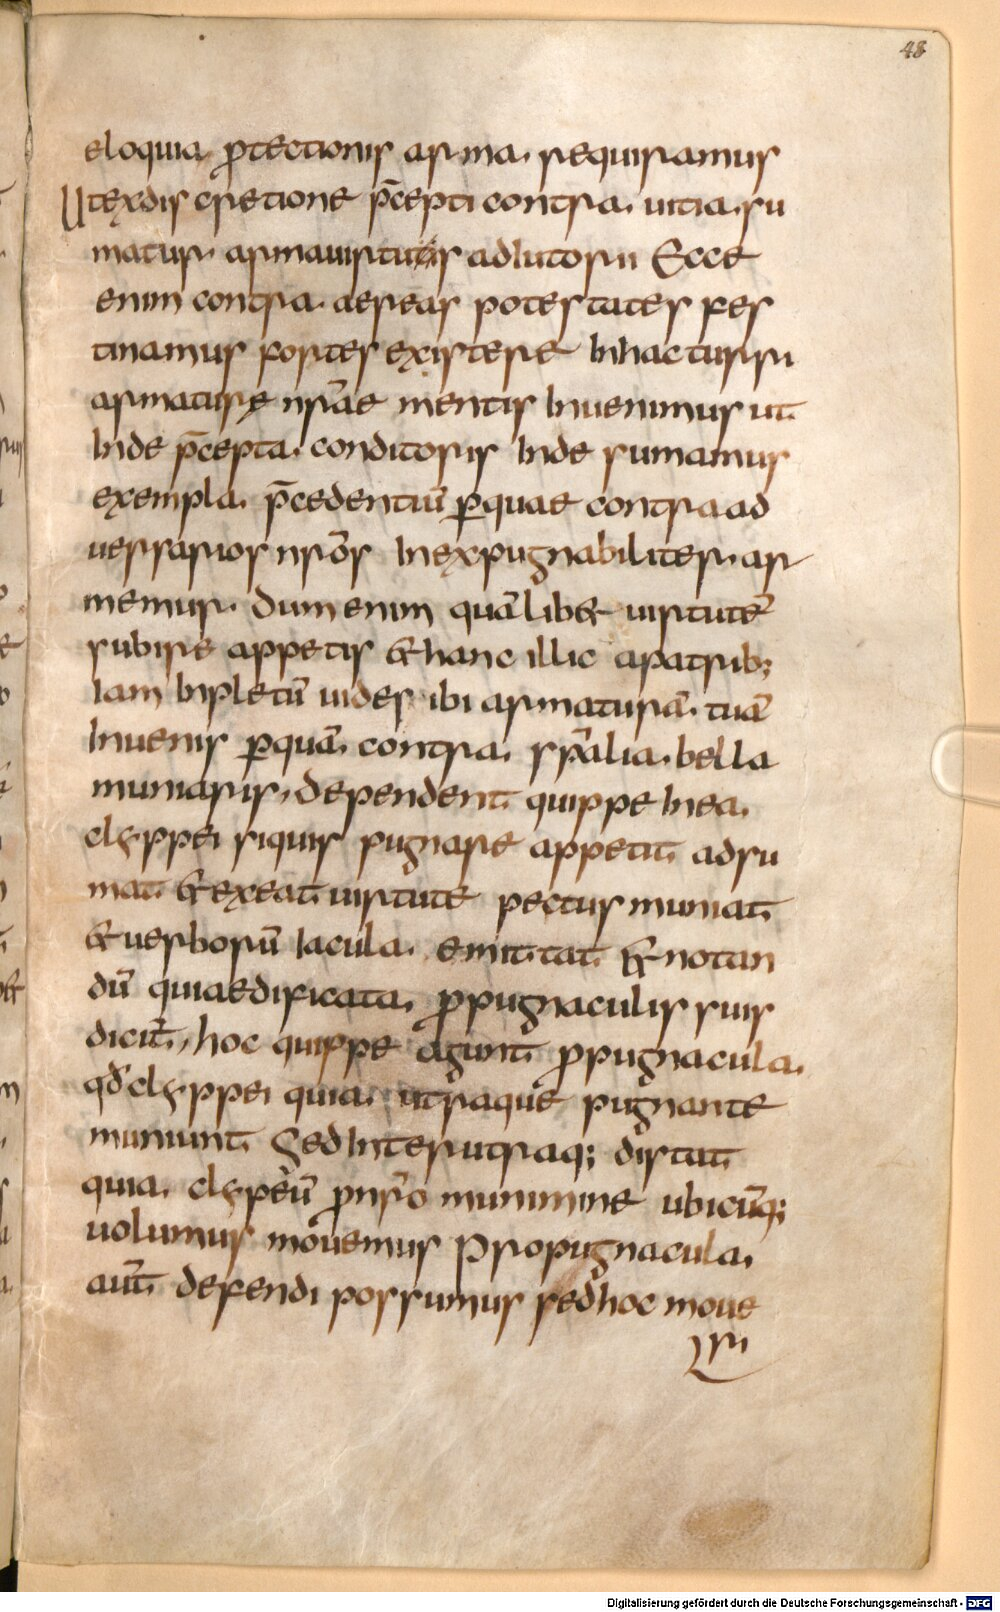 48
eloquia protectionis arma requiramus
Utexdis cretione p̄cepti contra uitia su
matur arma uirtutis adlutorii Ecce
enim contra aereas potestates fes
tinamus fortes existere Inhac turri
armature nr̄ae mentis Inuenimus ut
Inde p̄cepta conditoris Inde sumamus
exempla p̄cedentiū ꝑquae contra ad
uersarios nr̄os Inexpugnabiliter ar
memur. dum enim quālib& uirtutē
subire appetis & hanc illic apatrib;
Iam Inpletū uides ibi armaturā tuā
Inuenis ꝑquā contra sp̄alia bella
muniaris, dependent quippe Inea
clyppei siquis pugnare appetit adsu
mat & exeat uirtute pectus muniat
& uerborū Iacula emittat & notan
dū quiaedificata ꝓpugnaculis suis
dicit̄, hoc quippe agunt ꝓpugnacula
qđ clyppei quia utraque pugnante
muniunt Sed Inter utraq; distat
quia clypeū ꝓnr̄o munimine ubicūq;
uolumus mouemus Propugnacula
aūt defendi possumus sed hoc moue
ri
Digitalisierung gefördert durch die Deutsche Forschungsgemeinschaft - DFG